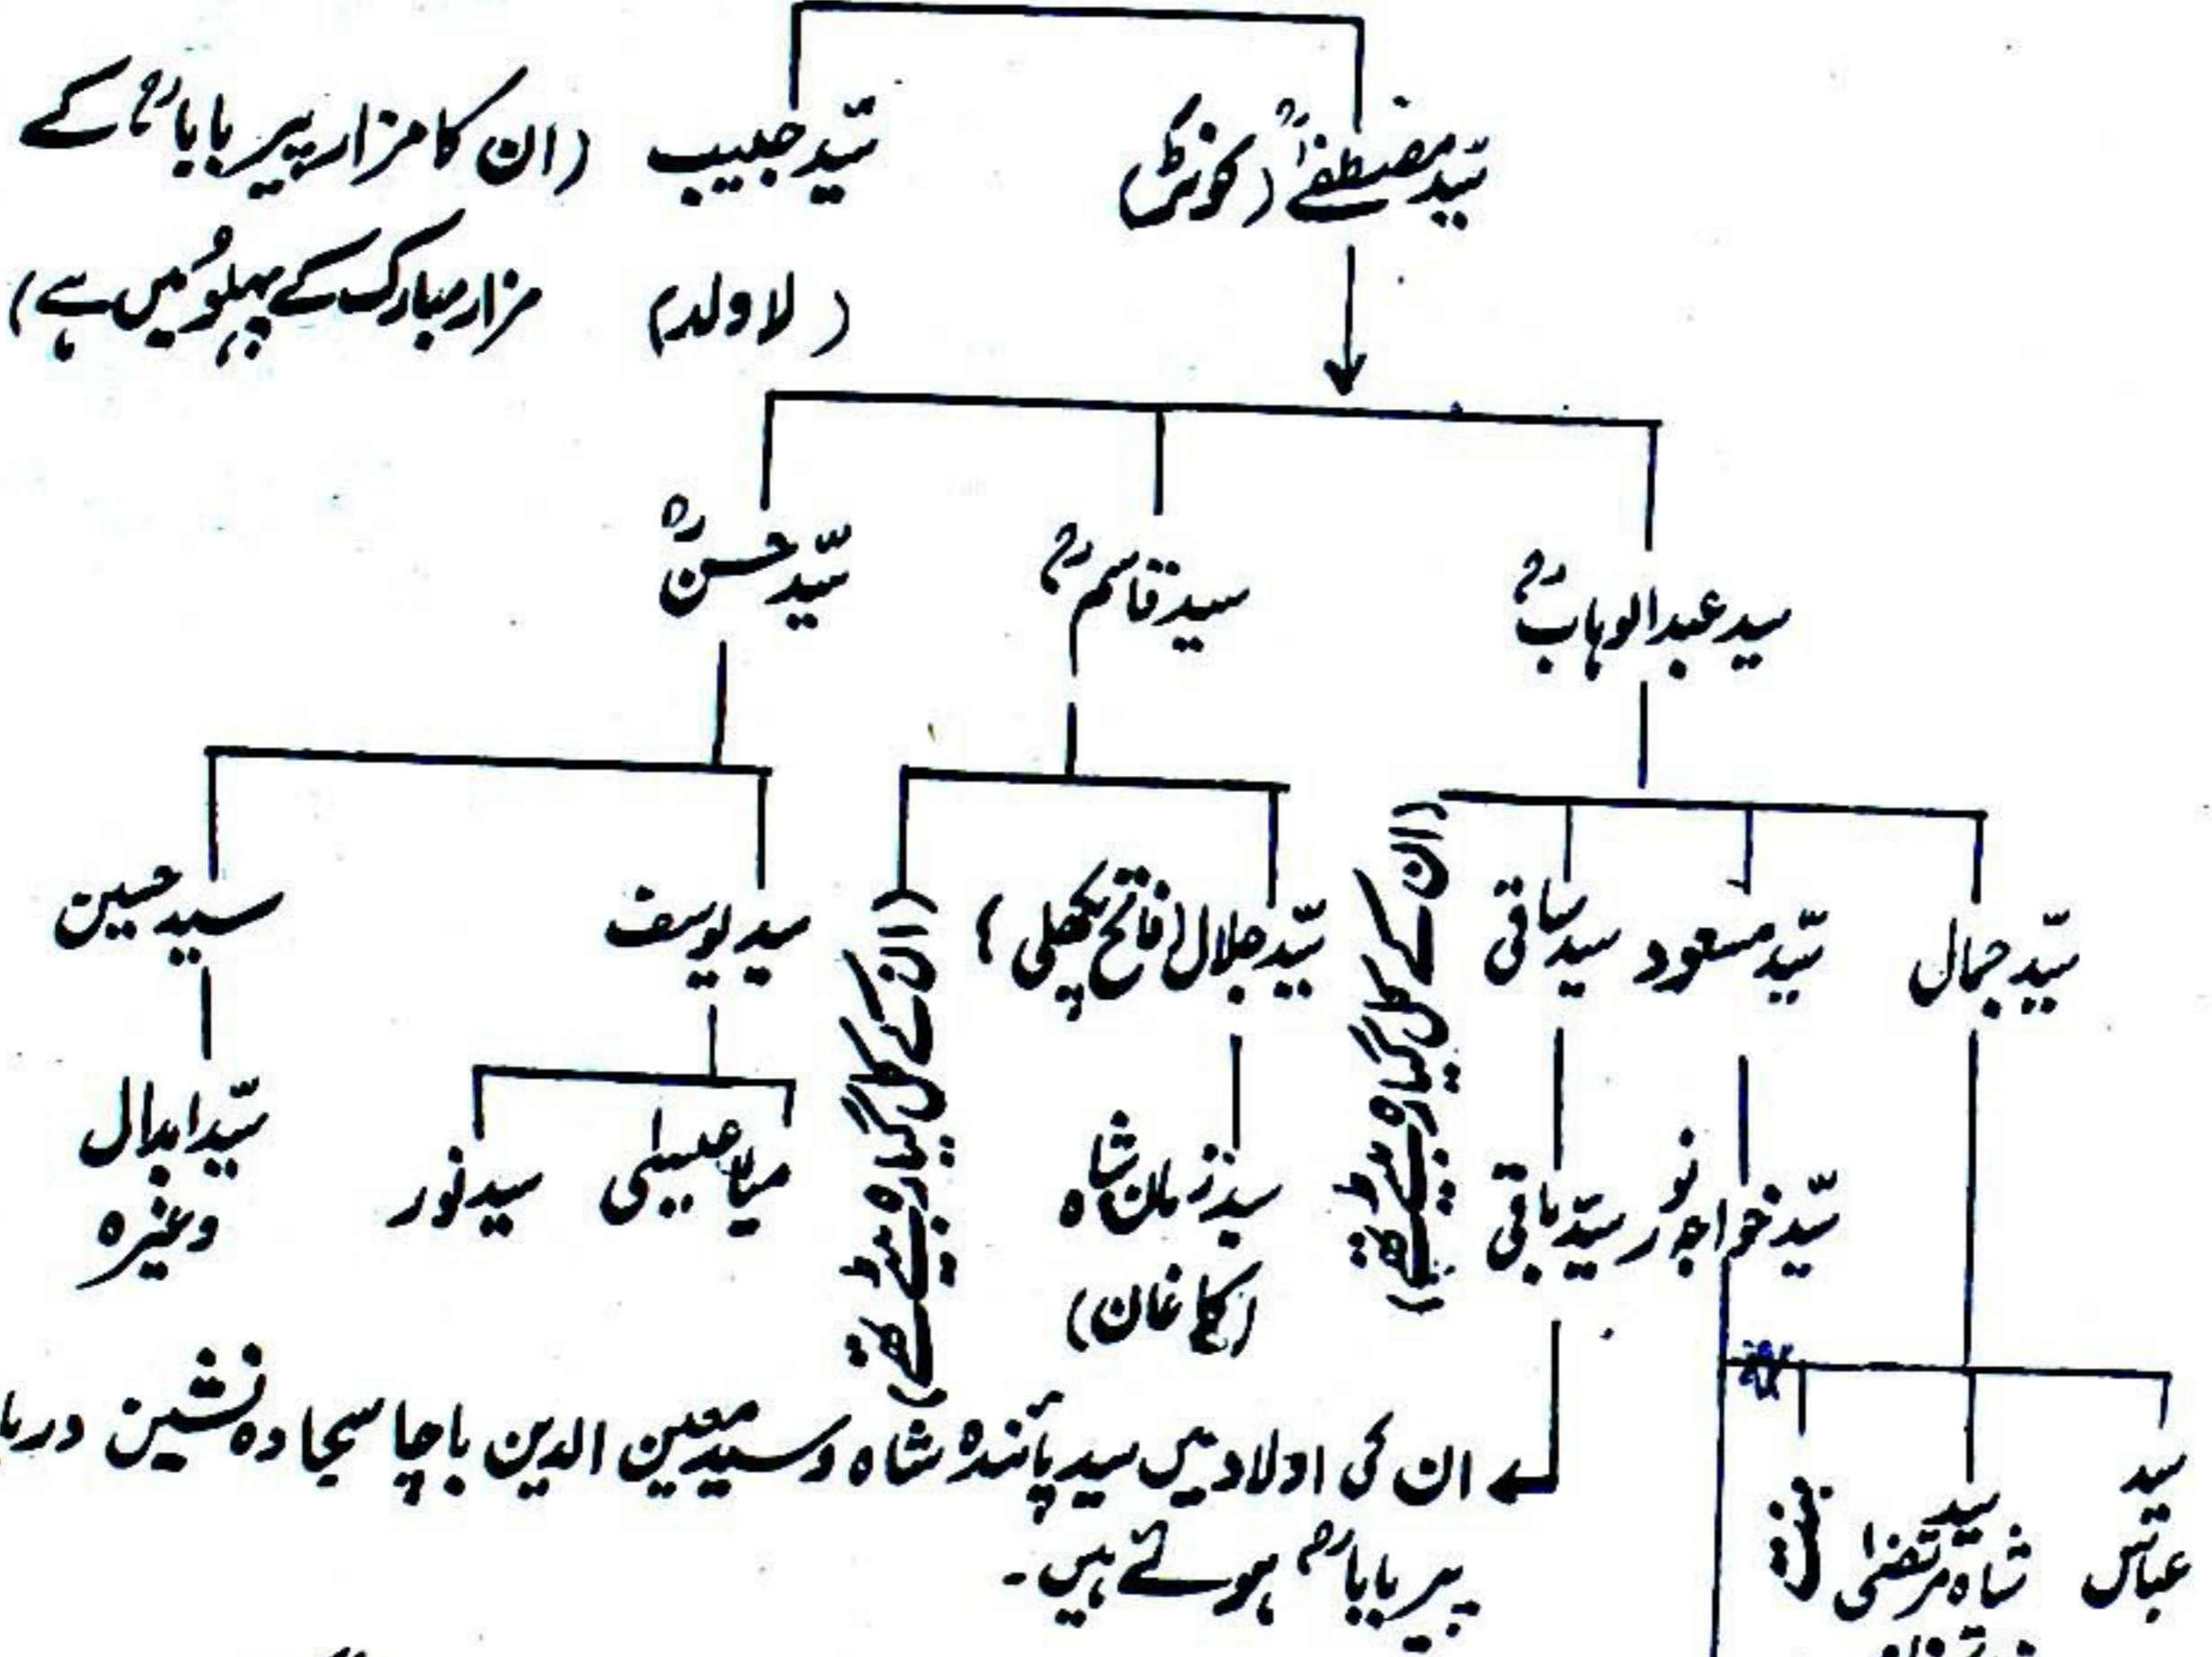 سیّد مصطفےٰؒ (کونڑ)
سیّد حبیب (ان کا مزار پیر باباؒ کے
(لا ولد) مزار مبارک کے پہلوُ میں ہے)
سید عبدالوہابؒ
سید قاسمؒ
سیّد حسنؒ
سیّد جمال
سیّد مسعود
سید ساقی
(ان کے کل گیارہ بیٹے تھے)
سیّد جلال (فاتح پکھلی)
(ان کے کل گیارہ بیٹے تھے)
سید یوسف
سید حسین
سیّد خواجہ نور
سیّد باقی
سید زمان شاہ
(کاغان)
میاں عیسیٰ
سید نور
سیّد ابدال
وغیرہ
ان کی اولاد میں سید پائندہ شاہ و سید معین الدین باچا سجادہ نشین
پیر باباؒ ہوئے ہیں۔
سید
عباس
سید
شاہ مرتضیٰ